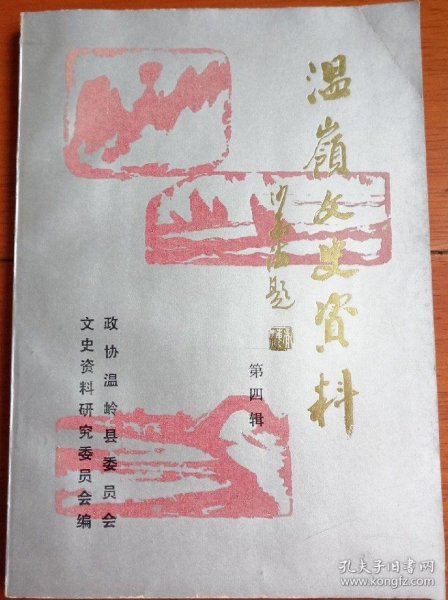 温嶺文史資料
沙孟海题
第四辑
政协温岭县委员会
文史资料研究委员会编
孔夫子旧书网
www.kongfz.com